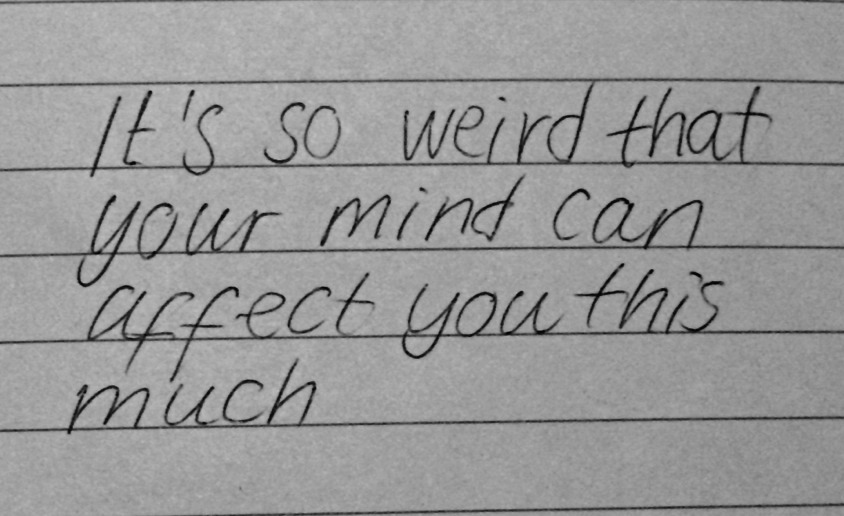 It's so weird that
your mind can
affect you this
much